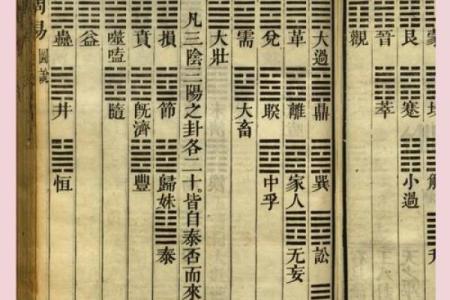 蒙 坎 解 升
艮 蹇 小過
晉 萃
觀
大過 鼎 巽 訟
革 離 家人 无妄
兌 睽 中孚
需 大畜
大壯
凡三陰三陽之卦各二十。皆自泰否而來
損 節 歸妹 泰
賁 旣濟 豐
噬嗑 隨
益
蠱 井 恒
周易